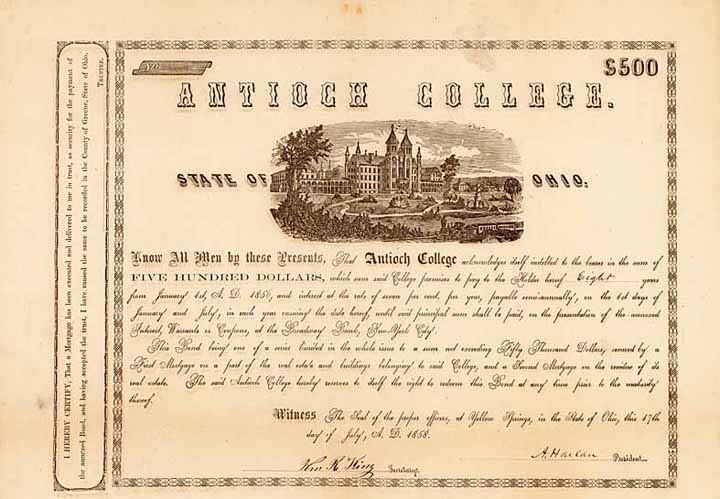 No
£500
ANTIOCH COLLEGE.
STATE OF OHIO.
Know All Men by these Presents, That Antioch College acknowledges itself indebted to the bearer in the sum of
FIVE HUNDRED DOLLARS, which sum said College promises to pay to the Holder hereof Eight years
from January 1st, A. D. 1856, and interest at the rate of seven per cent. per year, payable semi-annually, on the 1st days of
January and July, in each year ensuing the date hereof, until said principal sum shall be paid, on the presentation of the annexed
Interest Warrants or Coupons, at the Broadway Bank, New-York City.
This Bond being one of a series limited in the whole issue to a sum not exceeding Fifty Thousand Dollars, secured by a
First Mortgage on a part of the real estate and buildings belonging to said College, and a Second Mortgage on the residue of its
real estate. The said Antioch College hereby reserves to itself the right to redeem this Bond at any time prior to the maturity
thereof.
Witness The Seal of the proper officers, at Yellow Springs, in the State of Ohio, this 17th
day of July, A. D. 1858.
A. Harlan President.
Wm. K. King Secretary.
I HEREBY CERTIFY, That a Mortgage has been executed and delivered to me in trust, as security for the payment of
the annexed Bond, and having accepted the trust, I have caused the same to be recorded in the County of Greene, State of Ohio.
TRUSTEE.